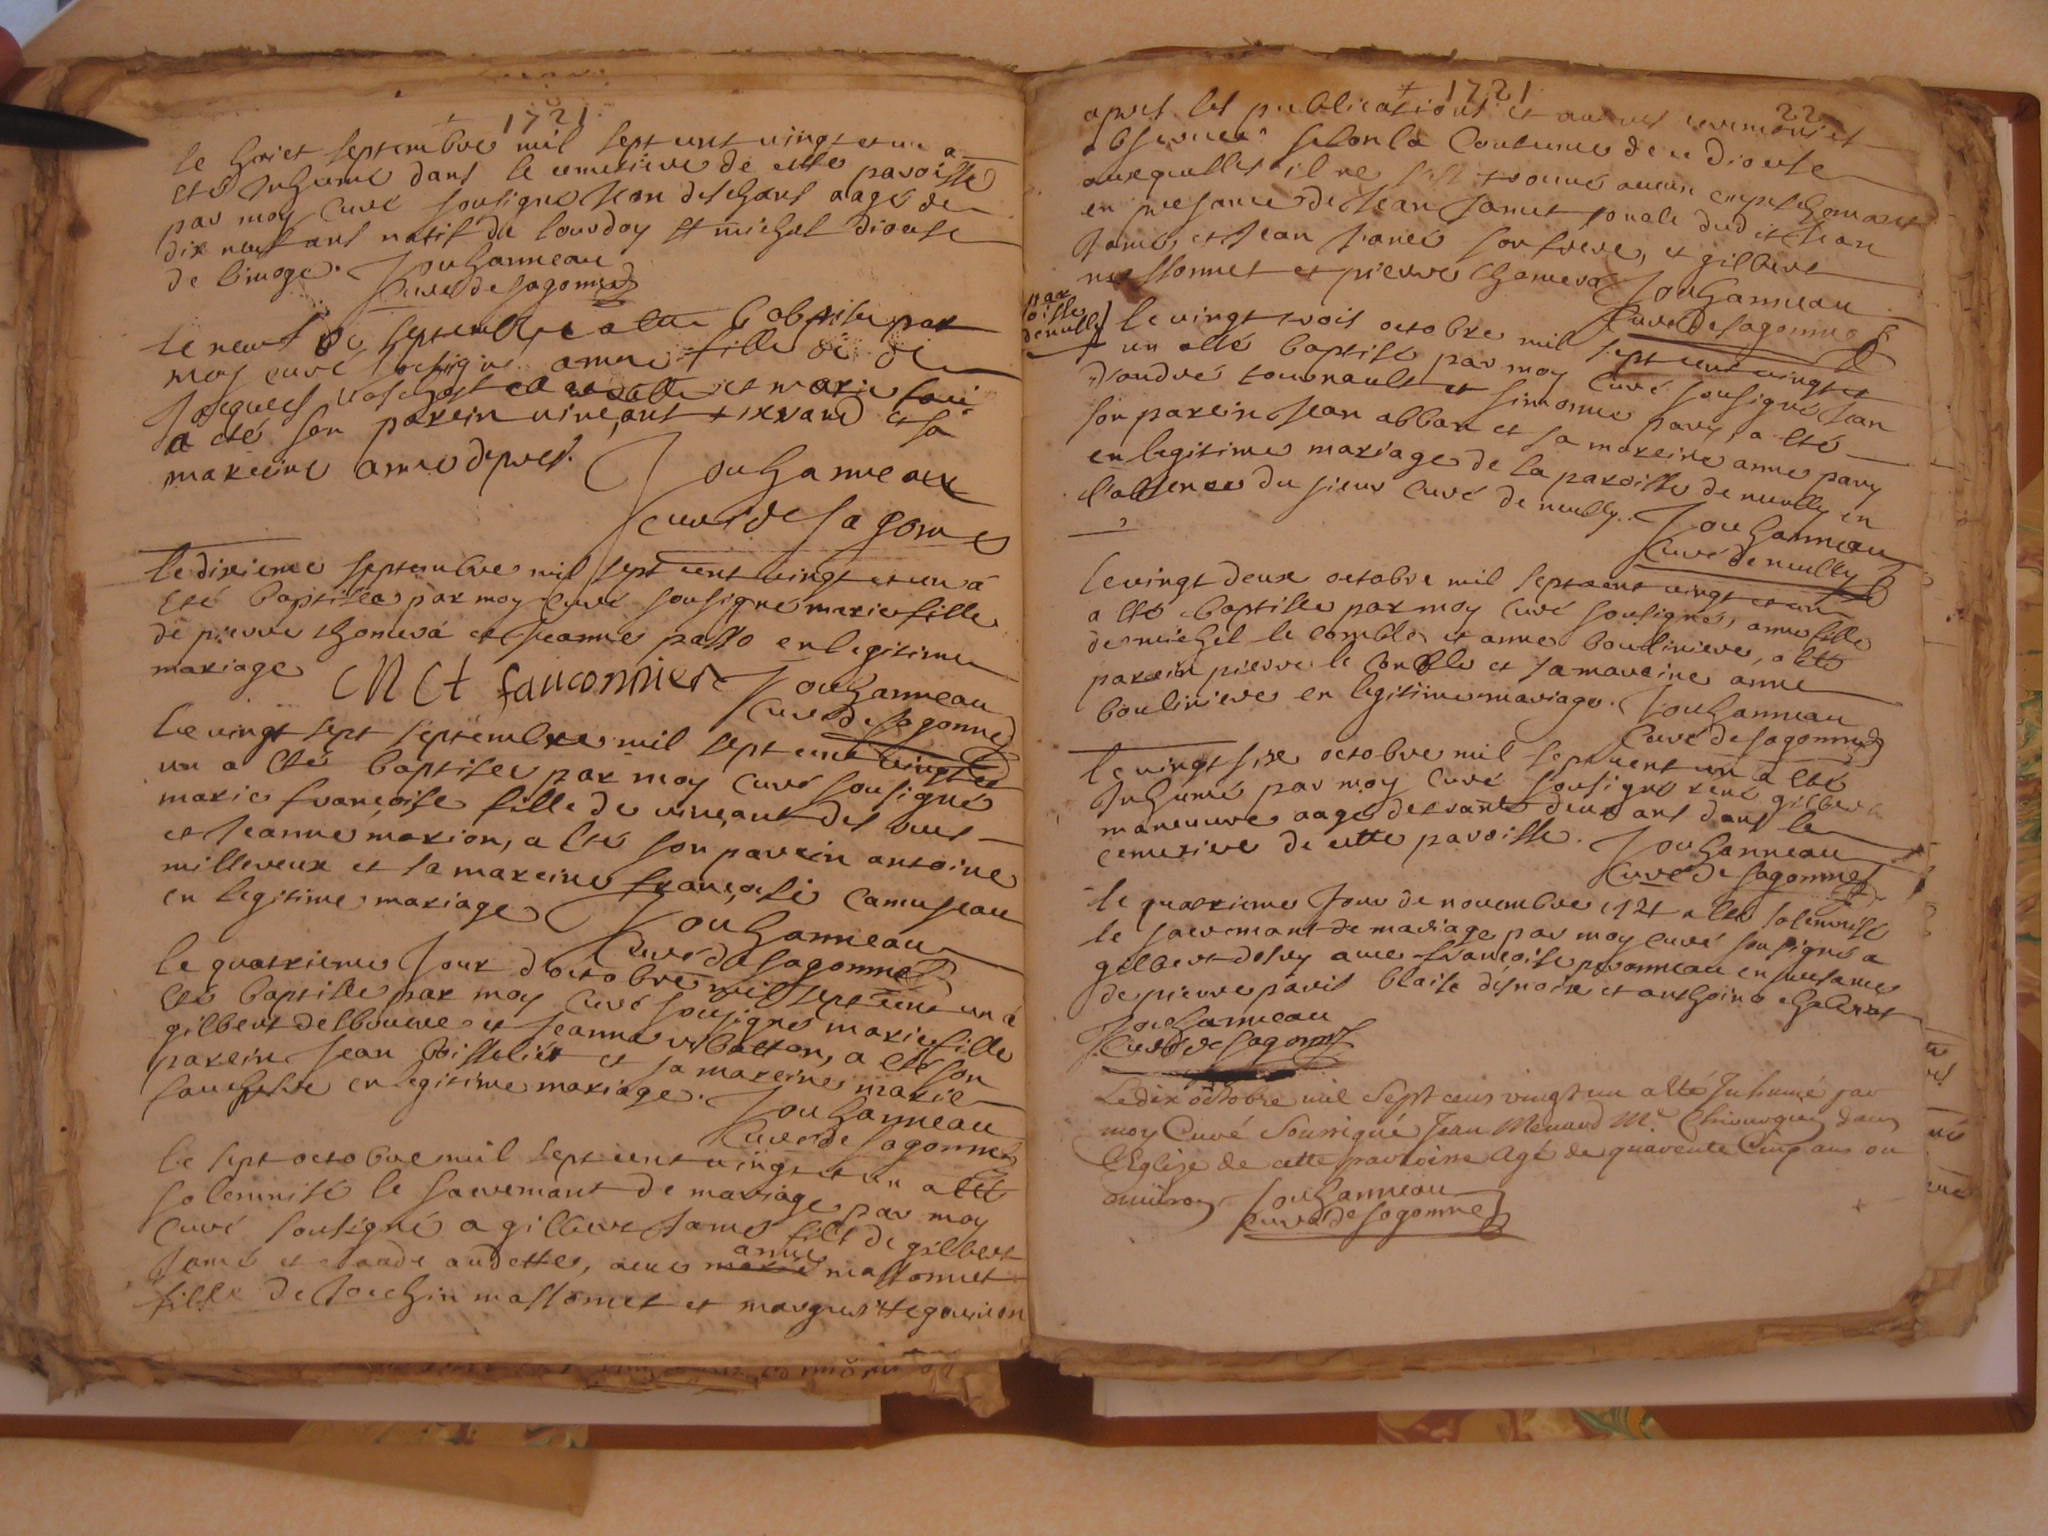 + 1721
le huict septembre mil sept cent vingt et un a
esté Inhumé dans le cemetiere de cette paroisse
par moy curé sousigné Jean deschans aagé de
dix neuf ans natif de lourdoy st michel diocese
de limoge. Jouhanneau
curé de sagonne
le neuf de septembre a eté baptisée par
moy curé sousigné anne fille de
Jacques et marie
a eté son parein vincant et sa
mareine anne depres. Jouhanneau
curé de sagonne
le dixieme septembre mil sept cent vingt et un a
esté baptisée par moy curé sousigné marie fille
de pierre thomera et Jeanne en legitime
mariage fauconnier Jouhanneau
curé de sagonne
le vingt sept septembre mil sept cent vingt et
un a esté baptisée par moy curé sousigné
marie françoise fille de vincant des
et Jeanne marion, a esté son parein antoine
millereux et sa mareine françoise camuseau
en legitime mariage Jouhanneau
curé de sagonne
le quatrieme Jour d'octobre mil sept cent un a
esté baptisée par moy curé sousigné marie fille
gilbert delbouere et Jeanne a esté son
parein Jean et sa mareine marie
en legitime mariage. Jouhanneau
curé de sagonne
le sept octobre mil sept cent vingt et un a eté
solemnisé le sacremant de mariage par moy
curé sousigné a gilbert Jamet fils de gilbert
anne
Jamé et claude audettes, avec marie massonnet
fille de massonnet et margueritte
+ 1721 22
apres les publications et autres ceremonies
observees selon la coutume de ce diocese
auxquelles il ne s'est trouvé aucun empeschemant
en presance de Jean Jamet oncle dudit Jean
Jamé et Jean Jamé son frere, et gilbert
massonnet et pierre thomera Jouhanneau
curé de sagonne
par
oisse
de neuilly
le vingt trois octobre mil sept cent vingt et
un esté baptisé par moy curé sousigné Jean
d'andré tournault et simonne pary, a esté
son parein Jean abbar et sa mareine anne pary
en legitime mariage de la paroisse de neuilly en
l'absence du sieur curé de neuilly. Jouhanneau
curé de neuilly
le vingt deux octobre mil sept cent vingt et un
a esté baptisée par moy curé sousigné, anne fille
de michel le comble et anne bouliniere, a esté
parein pierre le comble et sa mareine anne
bouliniere en legitime mariage. Jouhanneau
curé de sagonne
le vingt six octobre mil sept cent un a esté
Inhumé par moy curé sousigné rené gilbert
maneuvre aagé de trante deux ans dans le
cemetiere de cette paroisse. Jouhanneau
curé de sagonne
le quatrieme Jour de novembre 1721 a esté solemnisé
le sacremant de mariage par moy curé sousigné a
gilbert avec françoise peronneau en presance
de pierre paris blaise desnoix et anthoine
Jouhanneau
curé de sagonne
Le dix octobre mil sept cens vingt un a esté Inhumé par
moy Curé Soussigné Jean Menard Me. Chirurgien dans
l'Eglise de cette parroisse Agé de quarente Cinq ans ou
environ Jouhanneau
curé de sagonne